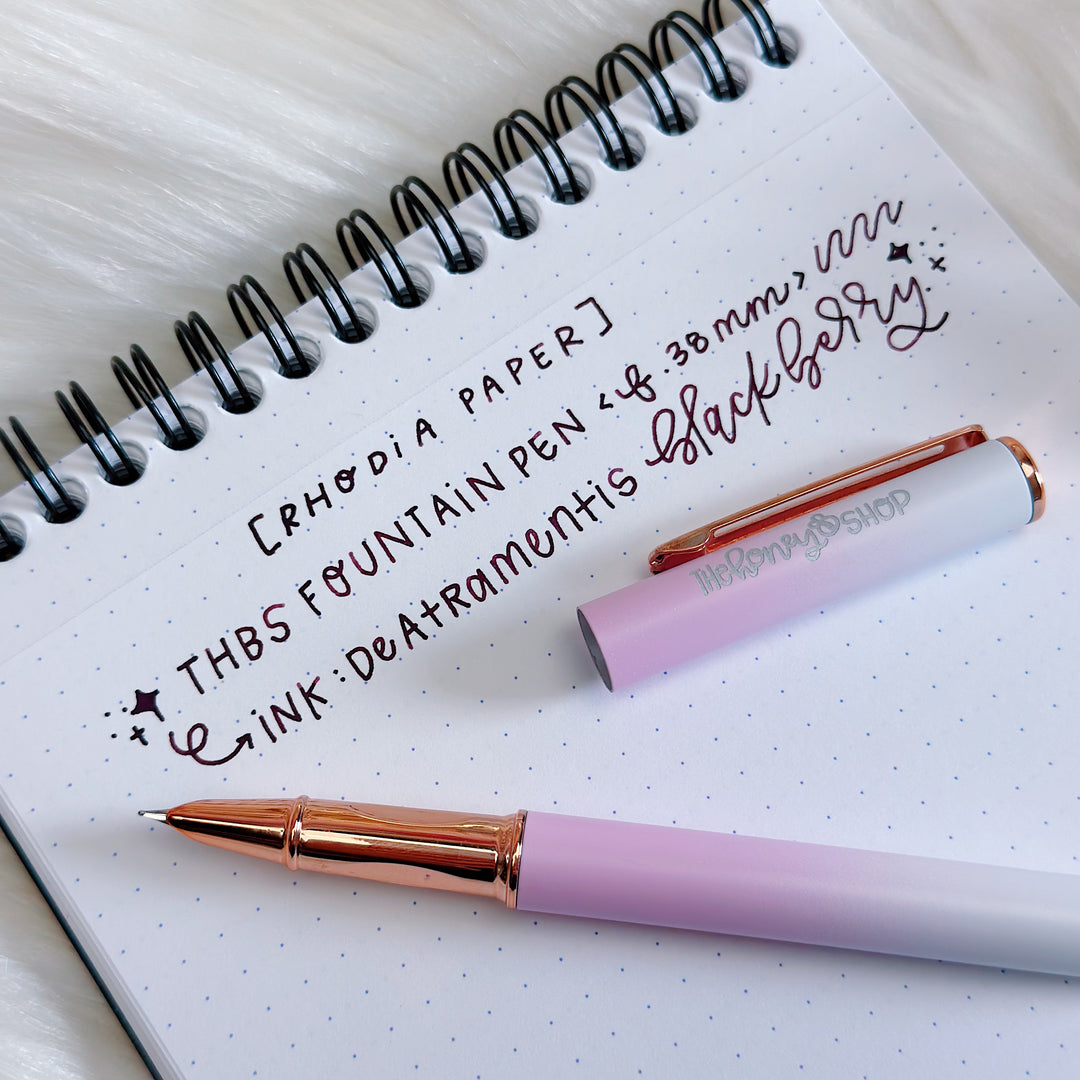 [RHODiA PAPER]
THBS FOUNTAiN PEN <f .38mm>
iNK: DeAtRAmeNtiS blackberry
THE honey B SHOP